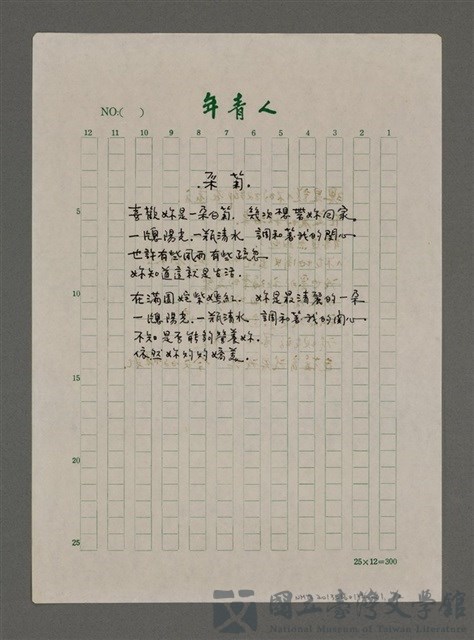 年青人
NO:( )
12 11 10 9 8 7 6 5 4 3 2 1
采菊.
喜歡妳是一朵白菊. 幾次想帶妳回家.
一牕陽光.一瓶清水 調和著我的關心
也許有些風雨有些疏忽
妳知道這就是生活.
在滿園姹紫嫣紅. 妳是最清麗的一朵
一牕陽光.一瓶清水 調和著我的關心.
不知是否能夠營養妳.
依然妳灼灼嬌美.
5
10
15
20
25
25×12=300
國立臺灣文學館
National Museum of Taiwan Literature